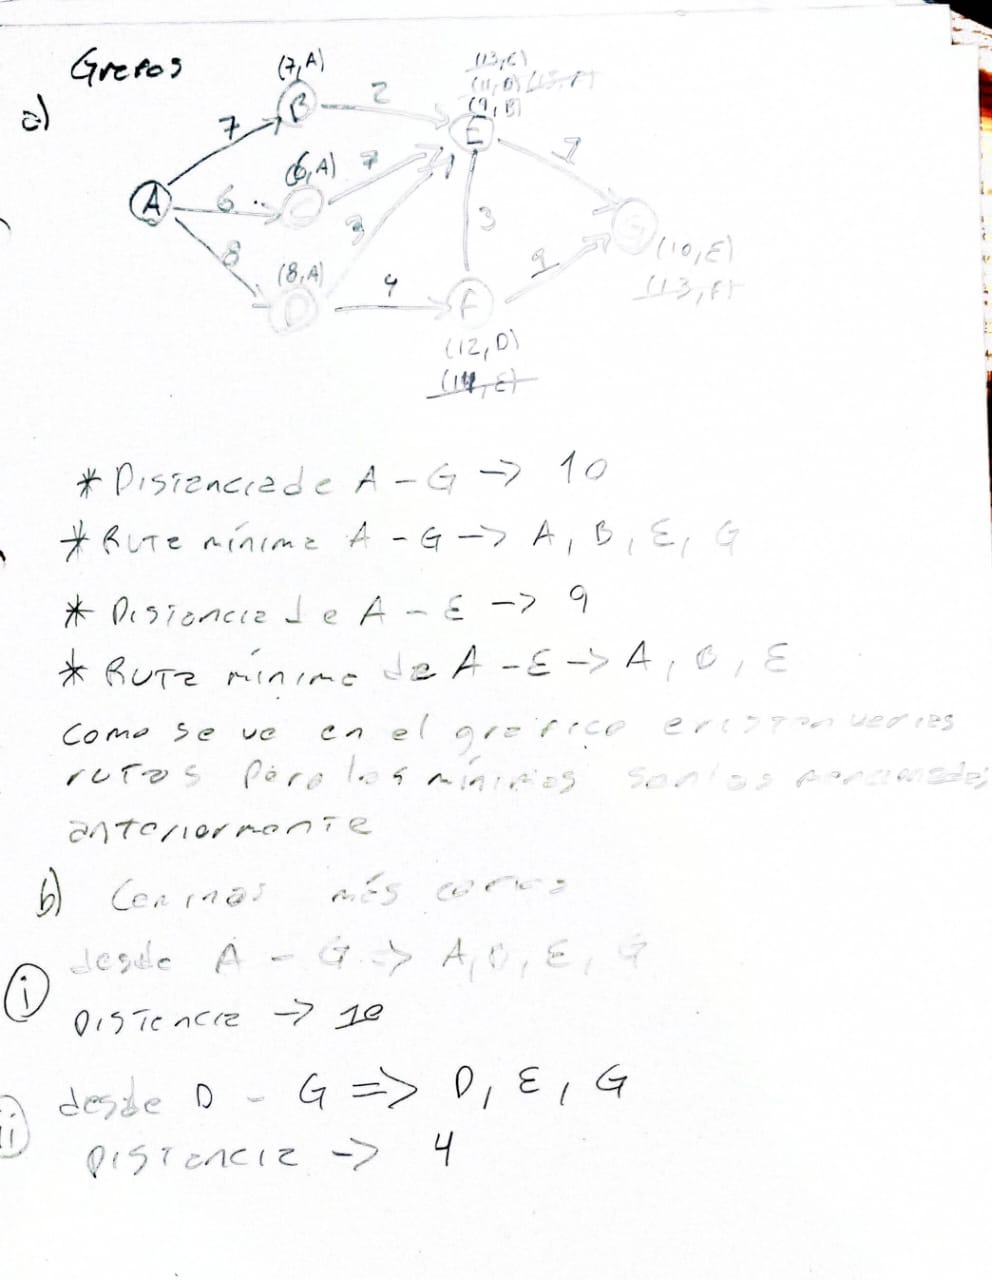 Grafos
a)
(7,A)
(13,C)
(11,D) (15,F)
(9,B)
B
2
E
7
(6,A)
7
A
6
C
3
3
G
8
(8,A)
D
4
F
(10,E)
(13,F)
(12,D)
* Distancia de A - G -> 10
* Ruta mínima A - G -> A, B, E, G
* Distancia de A - E -> 9
* Ruta mínima de A - E -> A, B, E
Como se ve en el gráfico existen varias
rutas pero las mínimas son las mencionadas
anteriormente
b) Caminos más cortos
desde A - G => A, B, E, G
i
Distancia -> 10
desde D - G => D, E, G
ii
Distancia -> 4